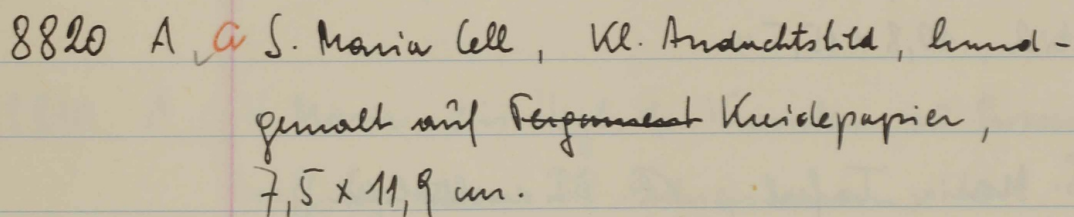 8820 A a S. Maria Cell, Kl. Andachtsbild, hand-
gemalt auf Pergament Kreidepapier,
7,5 x 11,9 cm.